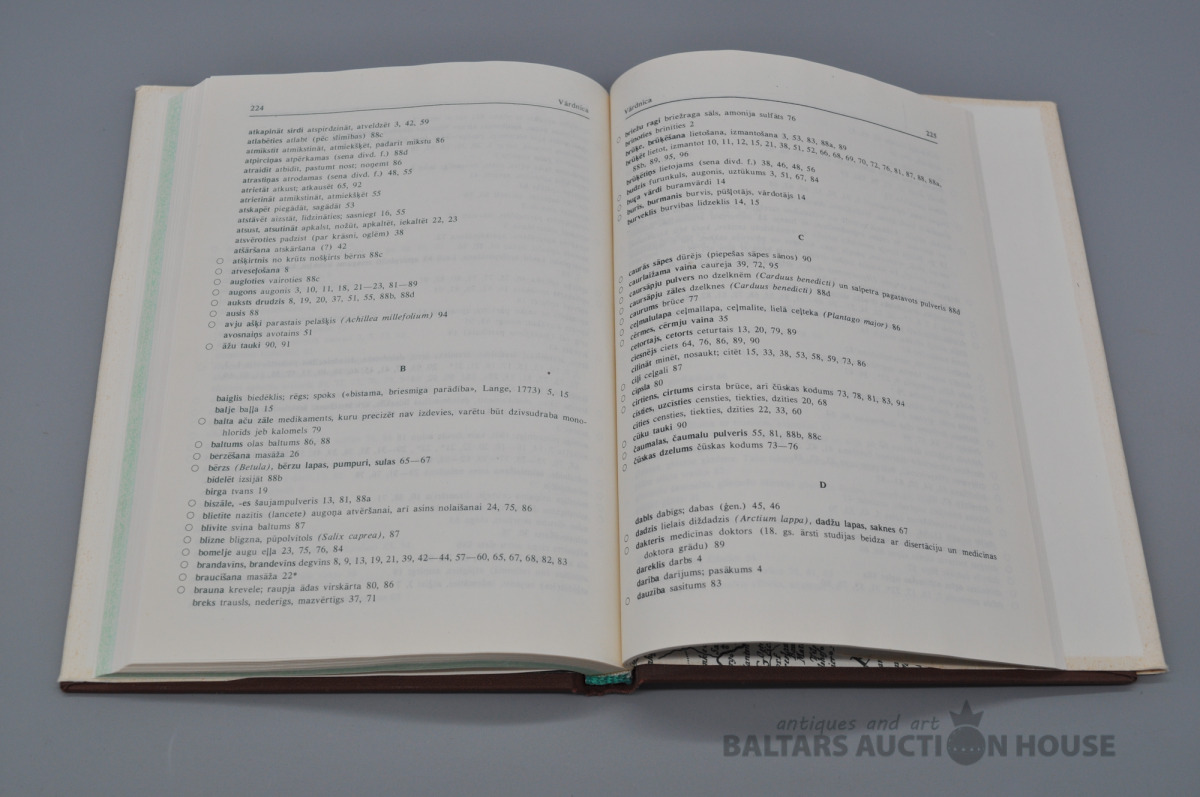 224 Vārdnīca
atkapināt sirdi atspirdzināt, atveldzēt 3, 42, 59
atlabēties atlabt (pēc slimības) 88c
atmīkstīt atmīkstināt, atmiekšķēt, padarīt mīkstu 86
atpirciņas atpērkamas (sena divd. f.) 88d
atraidīt atbīdīt, pastumt nost; noņemt 86
atrastiņas atrodamas (sena divd. f.) 48, 55
atrietāt atkust; atkausēt 65, 92
atrietināt atmīkstināt, atmiekšķēt 55
atskapēt piegādāt, sagādāt 53
atstāvēt aizstāt, līdzināties; sasniegt 16, 55
atsust, atsutināt apkalst, nožūt, apkaltēt, iekaltēt 22, 23
atsvēroties padzist (par krāsni, oglēm) 38
atšāršana atskāršana (?) 42
○ atšķirtnis no krūts nošķirts bērns 88c
○ atveseļošana 8
○ augļoties vairoties 88c
○ augons augonis 3, 10, 11, 18, 21—23, 81—89
○ auksts drudzis 8, 19, 20, 37, 51, 55, 88b, 88d
○ ausis 88
○ avju ašķi parastais pelašķis (Achillea millefolium) 94
avosnaiņš avotains 51
○ āžu tauki 90, 91
B
baiglis biedēklis; rēgs; spoks («bistama, briesmīga parādība», Lange, 1773) 5, 15
balje baļļa 15
○ balta aču zāle medikaments, kuru precizēt nav izdevies, varētu būt dzīvsudraba mono-
hlorīds jeb kalomels 79
○ baltums olas baltums 86, 88
○ berzēšana masāža 26
○ bērzs (Betula), bērzu lapas, pumpuri, sulas 65—67
bidelēt izsijāt 88b
birga tvans 19
○ biszāle, -es šaujampulveris 13, 81, 88a
○ blietīte nazītis (lancete) augoņa atvēršanai, arī asins nolaišanai 24, 75, 86
○ blīvīte svina baltums 87
○ blīzne blīgzna, pūpolvītols (Salix caprea), 87
○ bomelje augu eļļa 23, 75, 76, 84
○ brandavīns, brandevīns degvīns 8, 9, 13, 19, 21, 39, 42—44, 57—60, 65, 67, 68, 82, 83
○ braucīšana masāža 22*
○ brauna krevele; raupja ādas virskārta 80, 86
breks trausls, nederīgs, mazvērtīgs 37, 71
Vārdnīca 225
○ briežu ragi briežraga sāls, amonija sulfāts 76
brīnoties brīnīties 2
○ brūķe, brūķēšana lietošana, izmantošana 3, 53, 83, 88a, 89
brūķēt lietot, izmantot 10, 11, 12, 15, 21, 38, 51, 52, 66, 68, 69, 70, 72, 76, 81, 87, 88, 88a,
88b, 89, 95, 96
brūķētiņs lietojams (sena divd. f.) 38, 46, 48, 56
○ budzis furunkuls, augonis, uztūkums 3, 51, 67, 84
○ buŗa vārdi buramvārdi 14
○ buris, burmanis burvis, pūšļotājs, vārdotājs 14
○ burveklis burvības līdzeklis 14, 15
C
○ caurās sāpes dūrējs (piepešas sāpes sānos) 90
○ caurlaižama vaina caureja 39, 72, 95
○ caursāpju pulvers no dzelkņēm (Carduus benedicti) un salpetra pagatavots pulveris 88d
○ caursāpju zāles dzelknes (Carduus benedicti) 88d
○ caurums brūce 77
○ ceļmalulapa ceļmallapa, ceļmalīte, lielā ceļteka (Plantago major) 86
○ cērmes, cērmju vaina 35
○ cetortajs, cetorts ceturtais 13, 20, 79, 89
ciesnējs ciets 64, 76, 86, 89, 90
cilināt minēt, nosaukt; citēt 15, 33, 38, 53, 58, 59, 73, 86
ciļi ceļgali 87
○ cipsla 80
○ cirtiens, cirtums cirsta brūce, arī čūskas kodums 73, 78, 81, 83, 94
cīsties, uzcīsties censties, tiekties, dzīties 20, 68
cīties censties, tiekties, dzīties 22, 33, 60
○ cūku tauki 90
○ čaumalas, čaumalu pulveris 55, 81, 88b, 88c
○ čūskas dzelums čūskas kodums 73—76
D
dabīs dabīgs; dabas (ģen.) 45, 46
○ dadzis lielais diždadzis (Arctium lappa), dadžu lapas, saknes 67
○ dakteris medicīnas doktors (18. gs. ārsti studijas beidza ar disertāciju un medicīnas
doktora grādu) 89
dareklis darbs 4
darība darījums; pasākums 4
○ dauzība sasitums 83
antiques and art
BALTARS AUCTION HOUSE